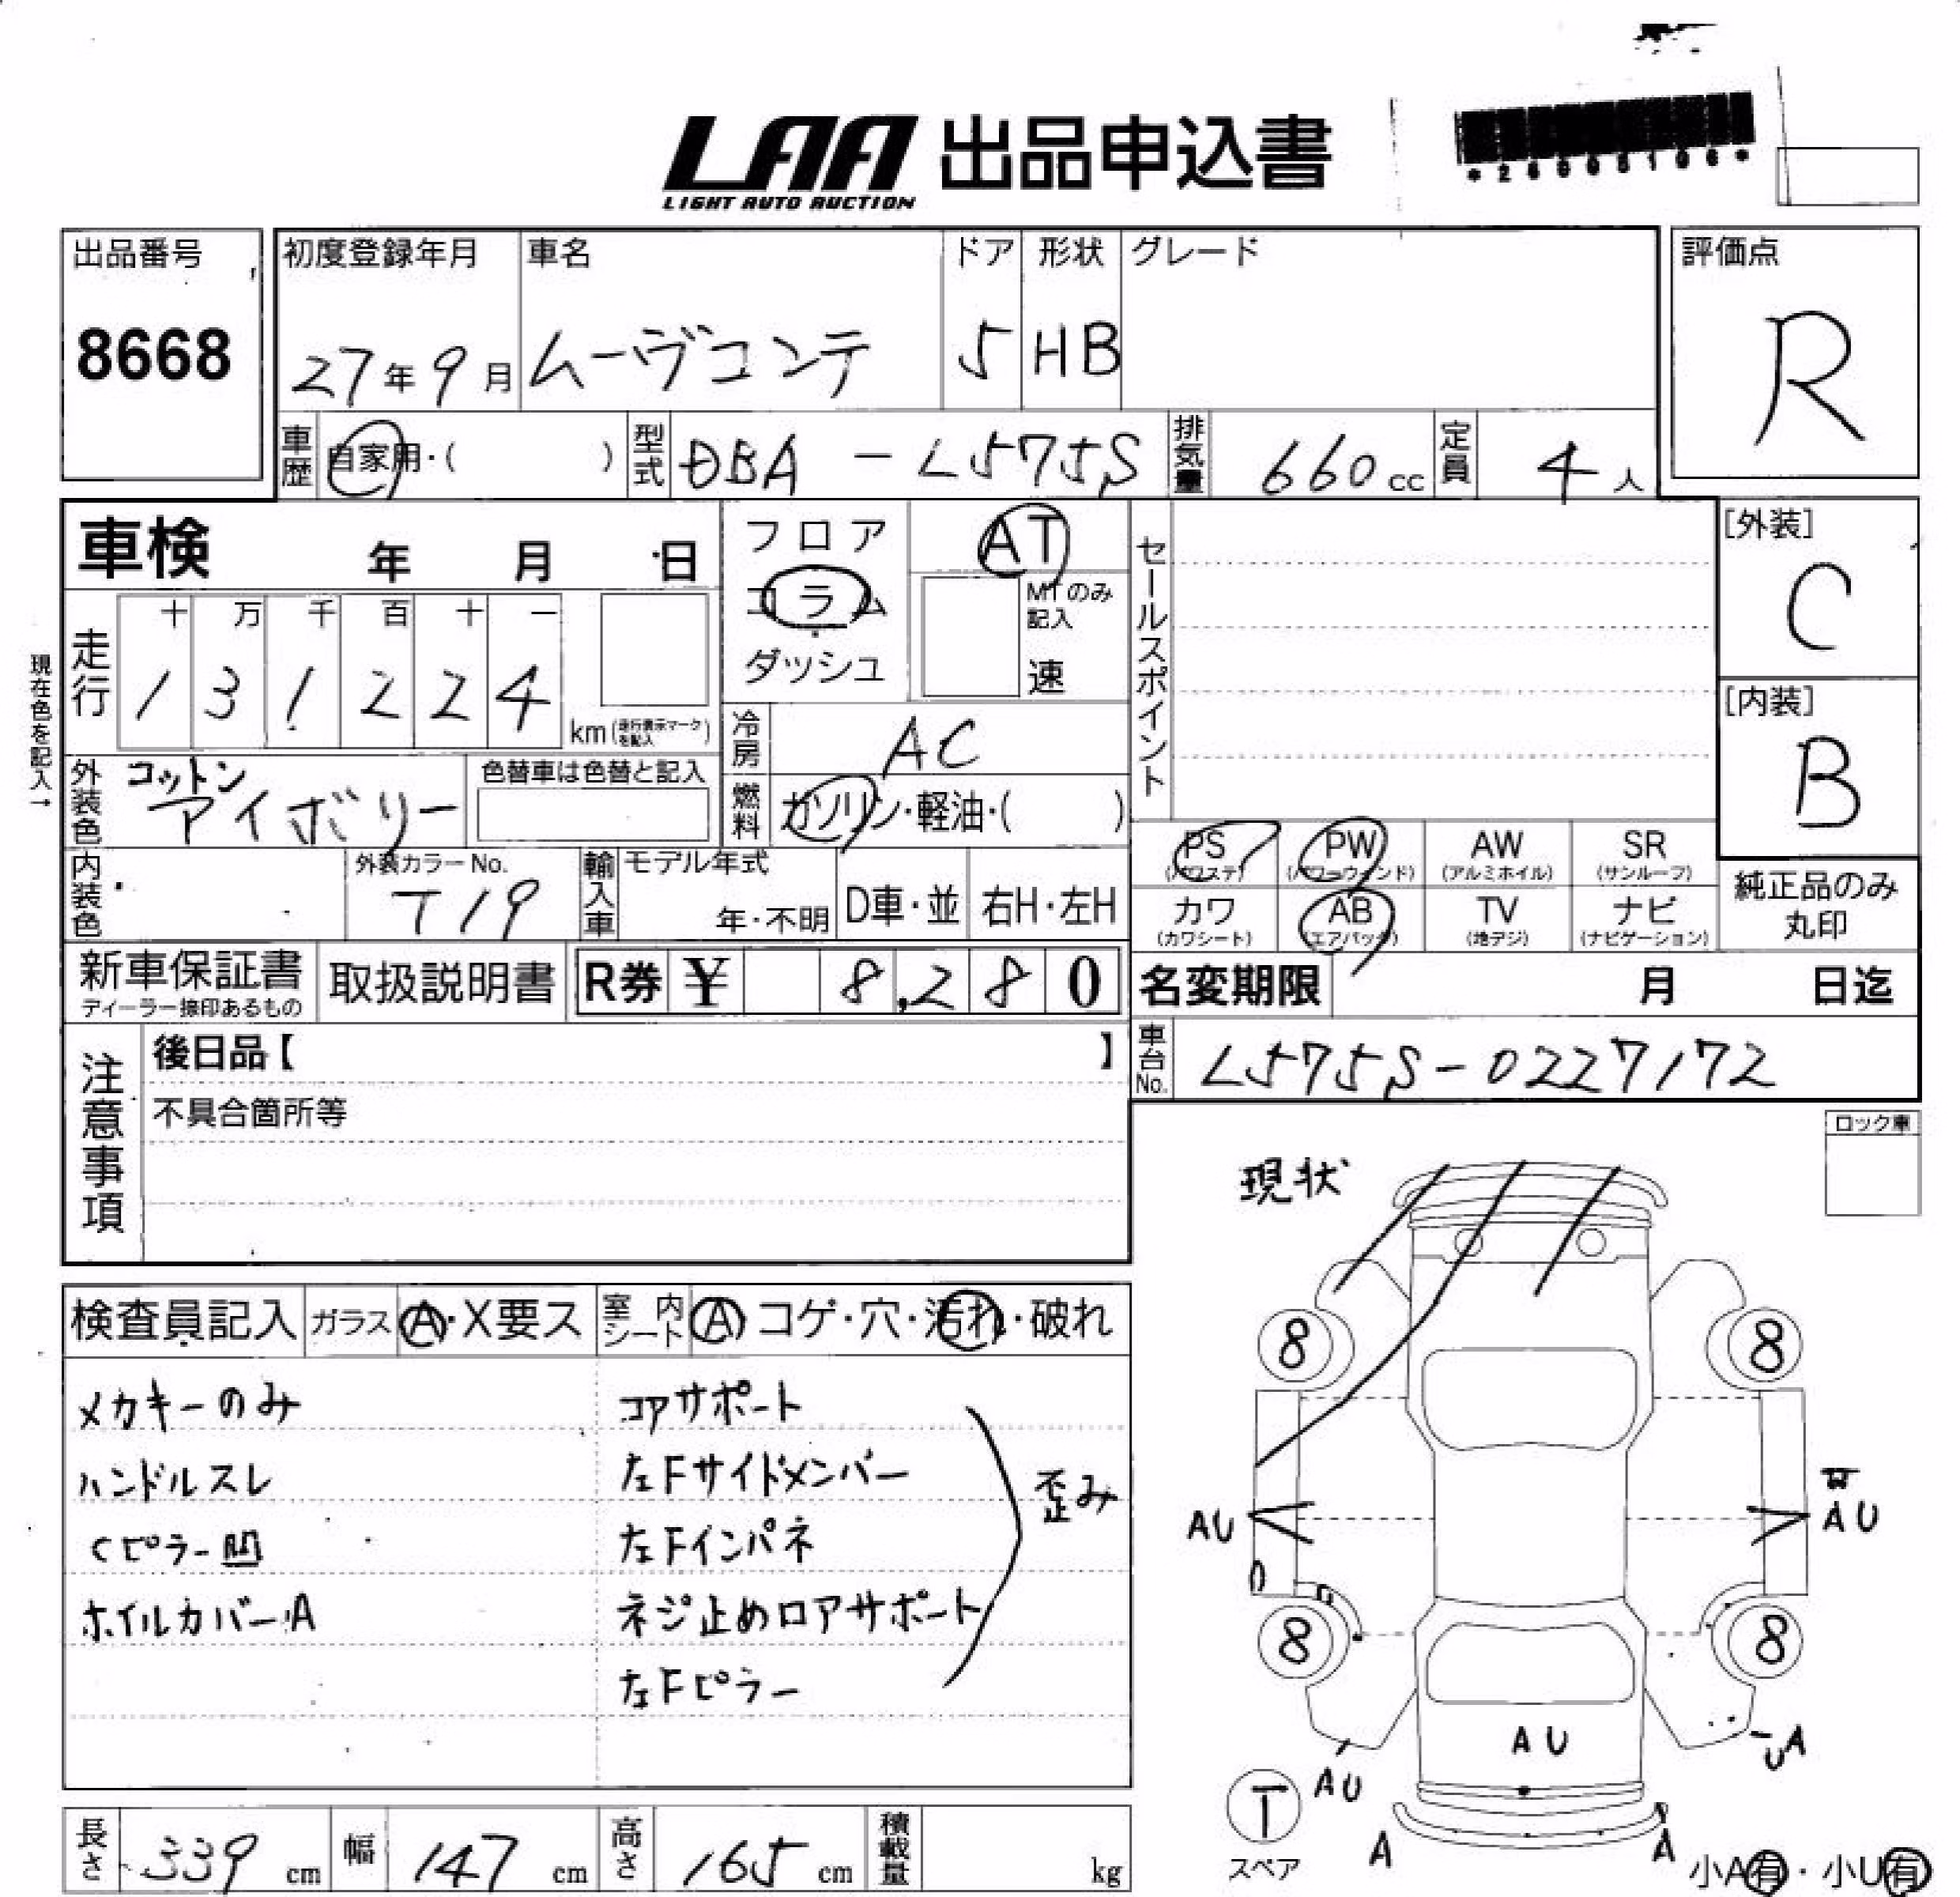 LAA 出品申込書
LIGHT AUTO AUCTION
*26005106*
出品番号
8668
初度登録年月
27年9月
車名
ムーヴコンテ
ドア
5
形状
HB
グレード
評価点
R
車歴 自家用・( )
型式 DBA - L575S
排気量 660cc
定員 4人
車検 年 月 日
フロア
コラム
ダッシュ
AT
MTのみ記入
速
セールスポイント
[外装]
C
[内装]
B
現在色を記入→
走行
十 万 千 百 十 一
1 3 1 2 2 4
km(走行表示マークを記入)
冷房 AC
燃料 ガソリン・軽油・( )
外装色 コットンアイボリー
色替車は色替と記入
内装色
外装カラーNo.
T19
輸入車
モデル年式
年・不明
D車・並
右H・左H
PS (パワステ)
PW (パワーウィンド)
AW (アルミホイル)
SR (サンルーフ)
カワ (カワシート)
AB (エアバック)
TV (地デジ)
ナビ (ナビゲーション)
純正品のみ丸印
新車保証書
ディーラー捺印あるもの
取扱説明書
R券 ¥ 8,280
名変期限 月 日迄
車台No. L575S-0227172
注意事項
後日品【 】
不具合箇所等
ロック車
現状
検査員記入
ガラス A・X要ス
室内シート A コゲ・穴・汚れ・破れ
メカキーのみ
ハンドルスレ
Cピラー凹
ホイルカバーA
コアサポート
左Fサイドメンバー
左Fインパネ
ネジ止めロアサポート
左Fピラー
歪み
8
8
AU
AU
8
8
AU
AU
UA
T
スペア
A
A
小A有・小U有
長さ 339cm
幅 147cm
高さ 165cm
積載量 kg